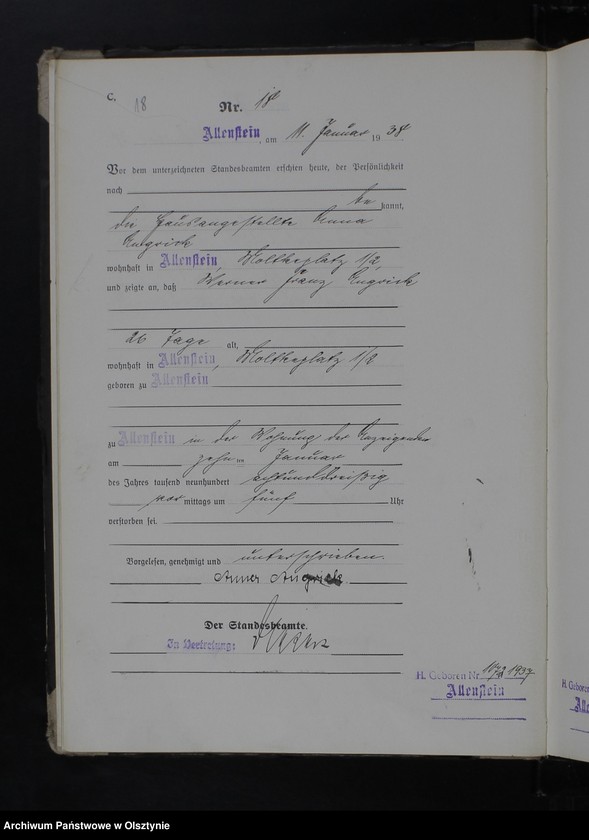 C.
18
Nr. 18
Allenstein, am 11. Januar 1938.
Vor dem unterzeichneten Standesbeamten erschien heute, der Persönlichkeit
nach
be kannt,
die Hausangestellte Anna
wohnhaft in Allenstein, Moltkeplatz 1/2,
und zeigte an, daß Werner Franz
26 Tage alt,
wohnhaft in Allenstein, Moltkeplatz 1/2
geboren zu Allenstein
zu Allenstein in der Wohnung der Anzeigenden
am zehnten Januar
des Jahres tausend neunhundert achtunddreißig
vor mittags um fünf Uhr
verstorben sei.
Vorgelesen, genehmigt und unterschrieben.
Anna
Der Standesbeamte.
In Vertretung:
H. Geboren Nr. 1937
Allenstein
H. Geboren
Alle
Archiwum Państwowe w Olsztynie